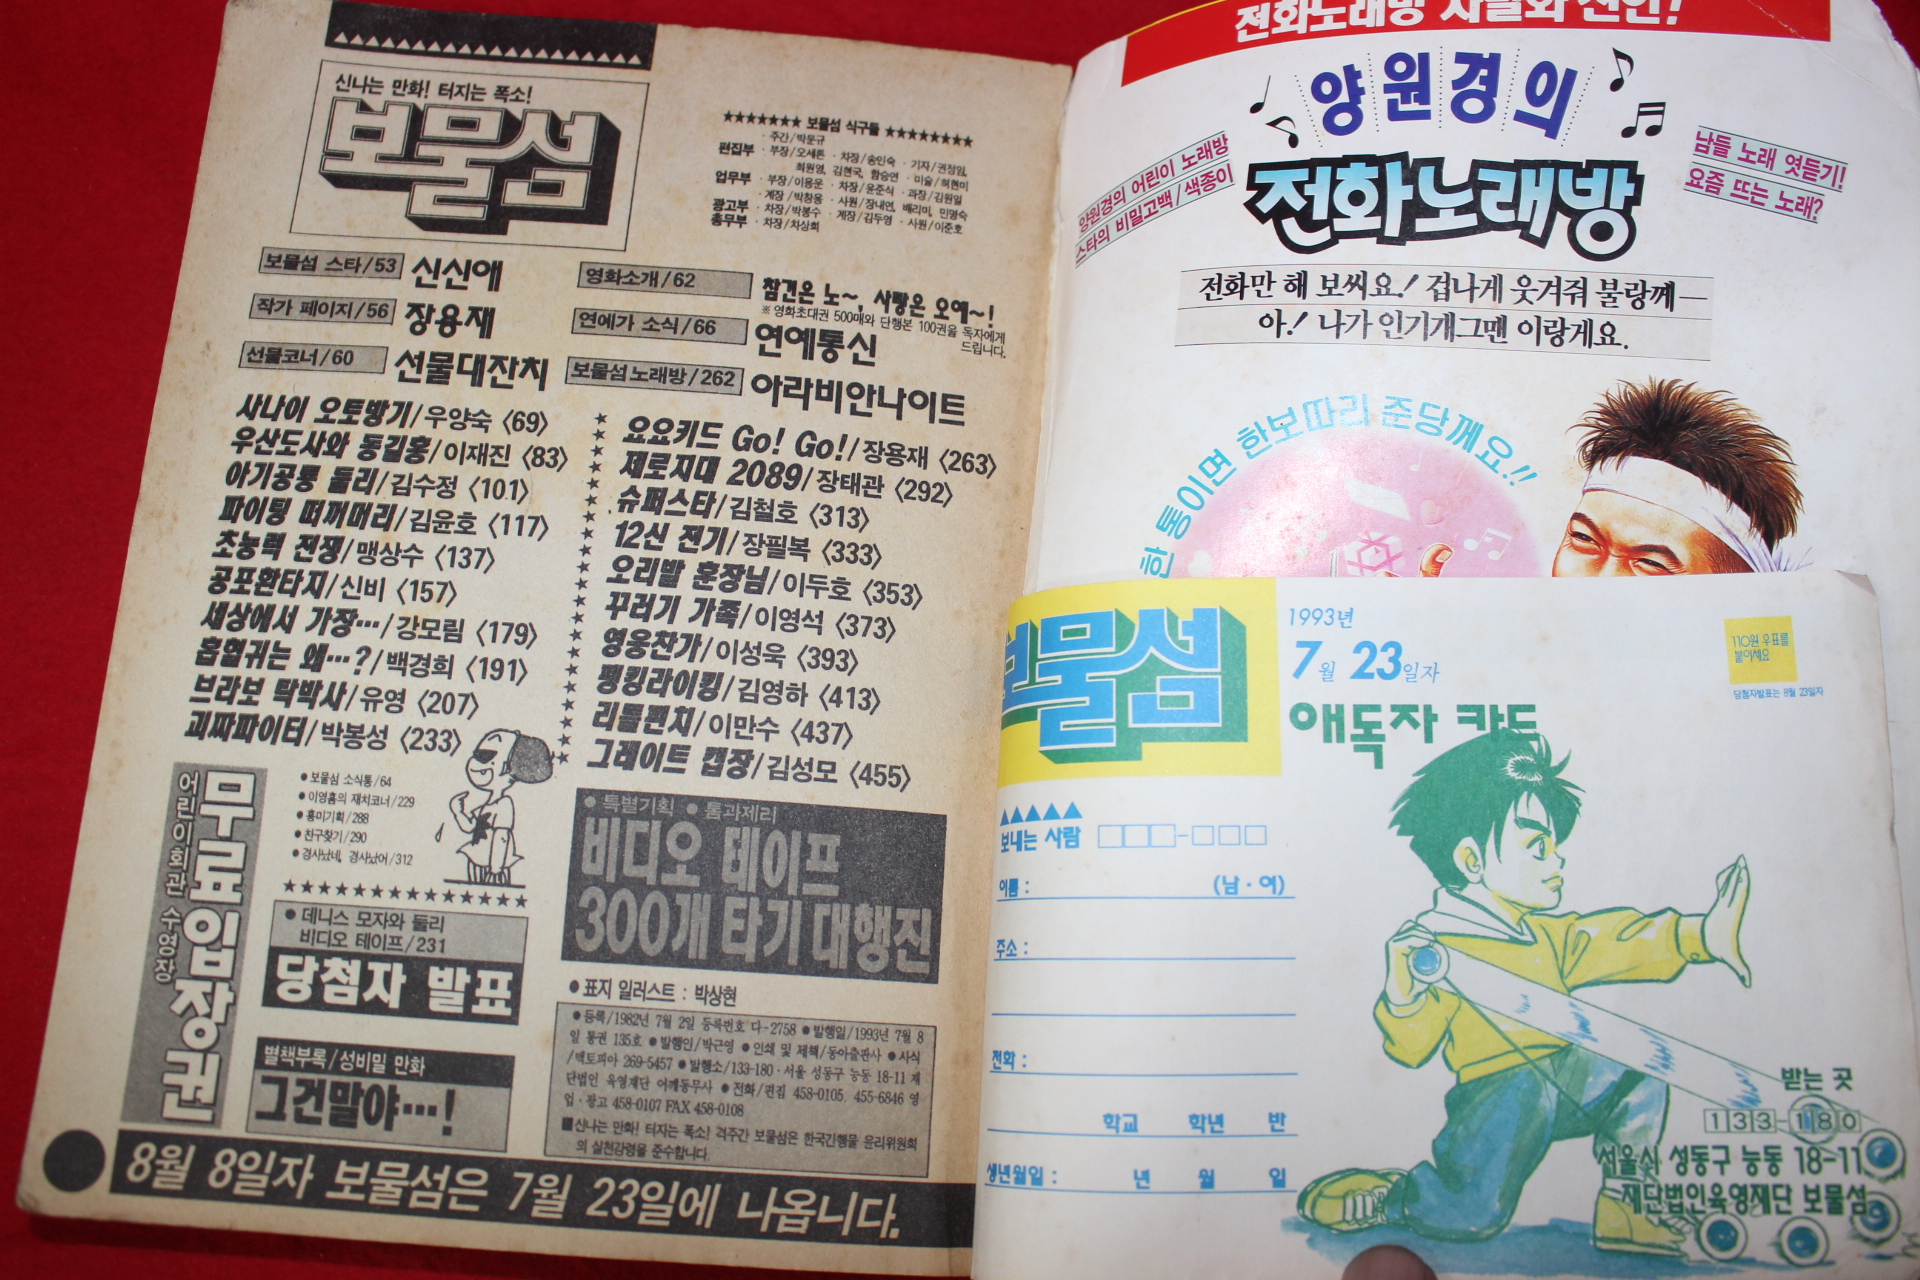 신나는 만화! 터지는 폭소!
보물섬
★★★★★★★ 보물섬 식구들 ★★★★★★★★
· 주간/박문규
편집부 · 부장/오세론 · 차장/송인숙 · 기자/권정임,
최원영, 김현국, 함승연 · 미술/최현미
업무부 · 부장/이용운 · 차장/윤준식 · 과장/김원일
· 계장/박창용 · 사원/장내연, 배리미, 민명숙
광고부 · 차장/박봉수 · 계장/김두영 · 사원/이준호
총무부 · 차장/차상희
보물섬 스타/53 신신애
작가 페이지/56 장용재
선물코너/60 선물대잔치
영화소개/62 참견은 노~, 사랑은 오예~!
※영화초대권 500매와 단행본 100권을 독자에게
드립니다.
연예가 소식/66 연예통신
보물섬 노래방/262 아라비안나이트
사나이 오토방기/우양숙 〈69〉
우산도사와 동길홍/이재진 〈83〉
아기공룡 둘리/김수정 〈101〉
파이팅 떠꺼머리/김윤호 〈117〉
초능력 전쟁/맹상수 〈137〉
공포환타지/신비 〈157〉
세상에서 가장…/강모림 〈179〉
흡혈귀는 왜…?/백경희 〈191〉
브라보 탁박사/유영 〈207〉
괴짜파이터/박봉성 〈233〉
요요키드 Go! Go!/장용재 〈263〉
제로지대 2089/장태관 〈292〉
슈퍼스타/김철호 〈313〉
12신 전기/장필복 〈333〉
오리발 훈장님/이두호 〈353〉
꾸러기 가족/이영석 〈373〉
영웅찬가/이성욱 〈393〉
핑킹라이킹/김영하 〈413〉
리틀펀치/이만수 〈437〉
그레이트 캡장/김성모 〈455〉
어린이회관 수영장
무료입장권
● 보물섬 소식통/64
● 이영흠의 재치코너/229
● 흥미기획/288
● 친구찾기/290
● 경사났네, 경사났어/312
★★★★★★★★★★★★★★★★★
● 데니스 모자와 둘리
비디오 테이프/231
당첨자 발표
별책부록/성비밀 만화
그건말야…!
● 특별기획 ● 톰과제리
비디오 테이프
300개 타기 대행진
● 표지 일러스트 : 박상현
● 등록/1982년 7월 2일 등록번호 다-2758 ● 발행일/1993년 7월 8
일 통권 135호 ● 발행인/박근영 ● 인쇄 및 제책/동아출판사 ● 사식
/맥토피아 269-5457 ● 발행소/133-180 · 서울 성동구 능동 18-11 재
단법인 육영재단 어깨동무사 ● 전화/편집 458-0105, 455-6846 영
업 · 광고 458-0107 FAX 458-0108
■ 신나는 만화! 터지는 폭소! 격주간 보물섬은 한국간행물 윤리위원회
의 실천강령을 준수합니다.
8월 8일자 보물섬은 7월 23일에 나옵니다.
전화노래방
양원경의
전화노래방
양원경의 어린이 노래방
스타의 비밀고백/색종이
남들 노래 엿듣기!
요즘 뜨는 노래?
전화만 해 보씨요! 겁나게 웃겨줘 불랑께—
아! 나가 인기개그맨 이랑게요.
한 통이면 한보따리 준당께요!!
보물섬
1993년
7월 23일자
애독자 카드
110원 우표를
붙이세요
당첨자발표는 8월 23일자
보내는 사람 □□□-□□□
이름 : (남 · 여)
주소 :
전화 :
학교 학년 반
생년월일 : 년 월 일
받는 곳
133-180
서울시 성동구 능동 18-11
재단법인육영재단 보물섬